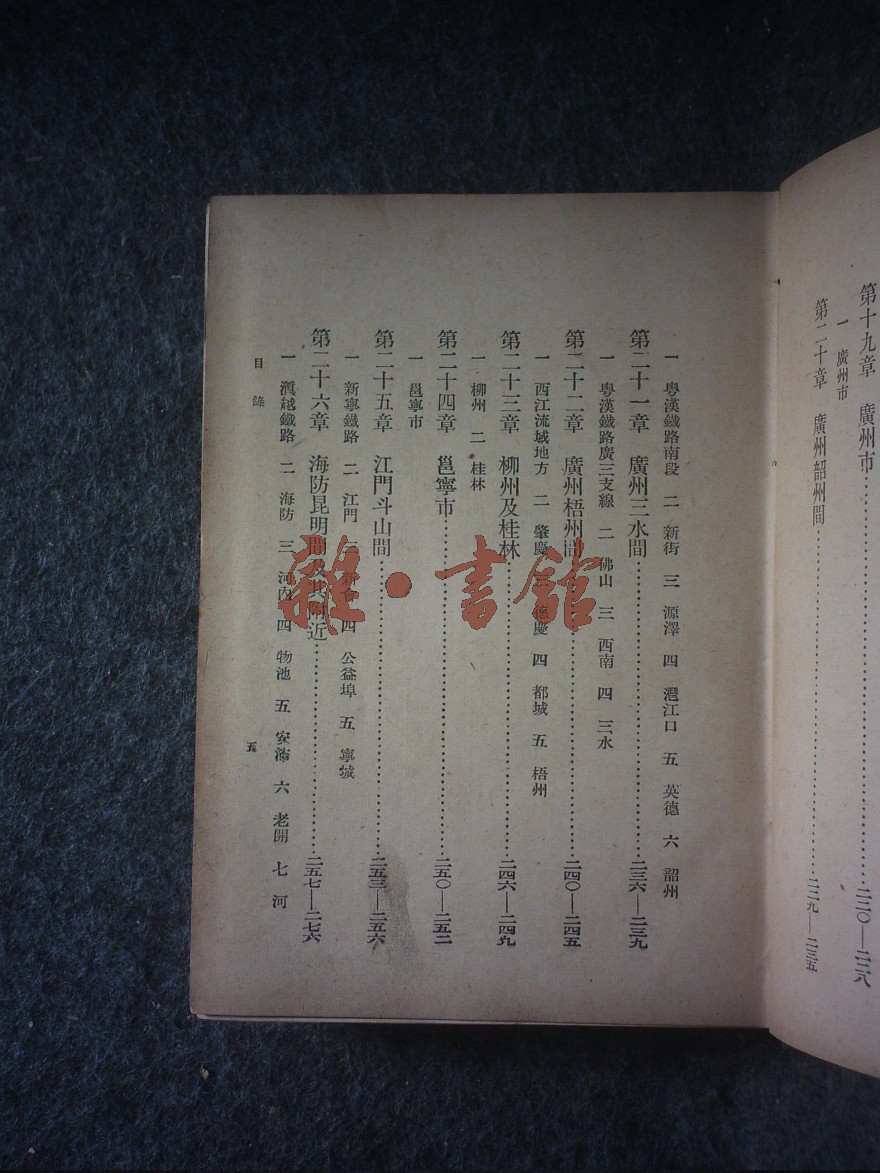 第十九章　廣州市……二二〇—二二八
一　廣州市
第二十章　廣州韶州間……二二九—二三五
一　粵漢鐵路南段　二　新街　三　源潭　四　㴖江口　五　英德　六　韶州
第二十一章　廣州三水間……二三六—二三九
一　粵漢鐵路廣三支線　二　佛山　三　西南　四　三水
第二十二章　廣州梧州間……二四〇—二四五
一　西江流域地方　二　肇慶　三　德慶　四　都城　五　梧州
第二十三章　柳州及桂林……二四六—二四九
一　柳州　二　桂林
第二十四章　邕寧市……二五〇—二五二
一　邕寧市
第二十五章　江門斗山間……二五三—二五六
一　新寧鐵路　二　江門　三　新會　四　公益埠　五　寧城
第二十六章　海防昆明間及其附近……二五七—二七六
一　滇越鐵路　二　海防　三　河內　四　物池　五　安沛　六　老開　七　河
目錄
五
雜·書館